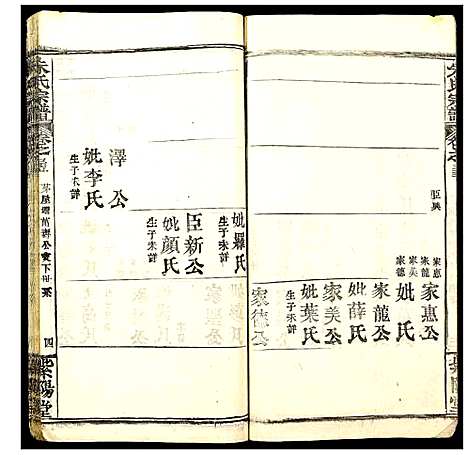 朱氏宗譜
臣興
家惠
家龍
家美
家德
家惠公
妣 氏
家龍公
妣薛氏
家美公
妣葉氏
生子未詳
家德公
妣羅氏
生子未詳
臣新公
妣顏氏
生子未詳
澤公
妣李氏
生子未詳
朱氏宗譜
四
紫陽堂